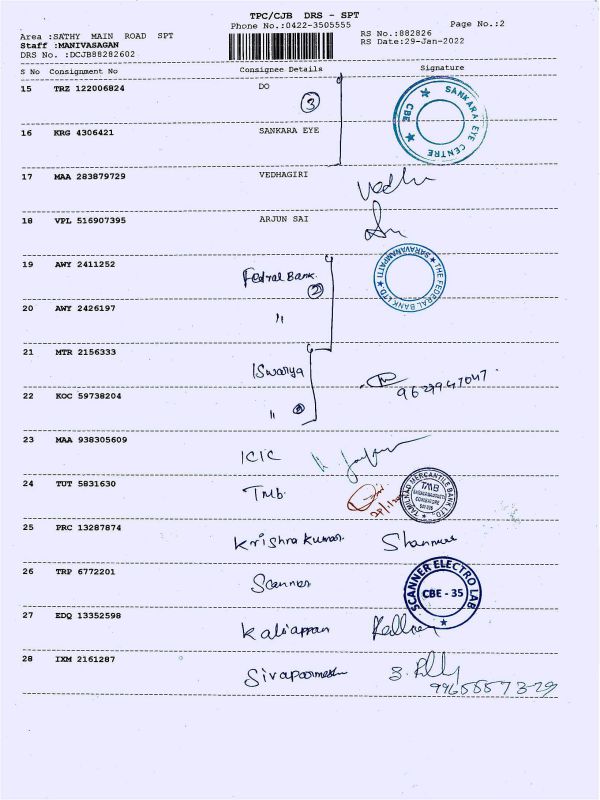 TPC/CJB DRS - SPT
Phone No.:0422-3505555
Page No.:2
Area :SATHY MAIN ROAD SPT
RS No.:882826
Staff :MANIVASAGAN
RS Date:29-Jan-2022
DRS No. :DCJB88282602
S No Consignment No Consignee Details Signature
15 TRZ 122006824 DO
3
SANKARA EYE CENTRE
CBE
16 KRG 4306421 SANKARA EYE
17 MAA 283879729 VEDHAGIRI
Vedhu
18 VPL 516907395 ARJUN SAI
19 AWY 2411252 Fedral Bank.
2
THE FEDERAL BANK LTD.
SARAVANAMPATTI
20 AWY 2426197 "
21 MTR 2156333 ISwarya
22 KOC 59738204 "
23 MAA 938305609 ICIC
24 TUT 5831630 Tmb.
TAMILNAD MERCANTILE BANK LTD.
TMB
25 PRC 13287874 Krishna Kumar.
26 TRP 6772201 Scanner
SCANNER ELECTRO LAB
CBE - 35
27 EDQ 13352598 Kaliappan
28 IXM 2161287